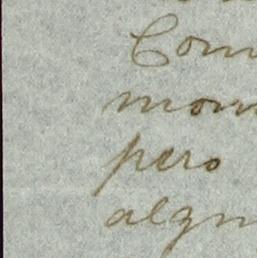 Com
mom
pero
algu